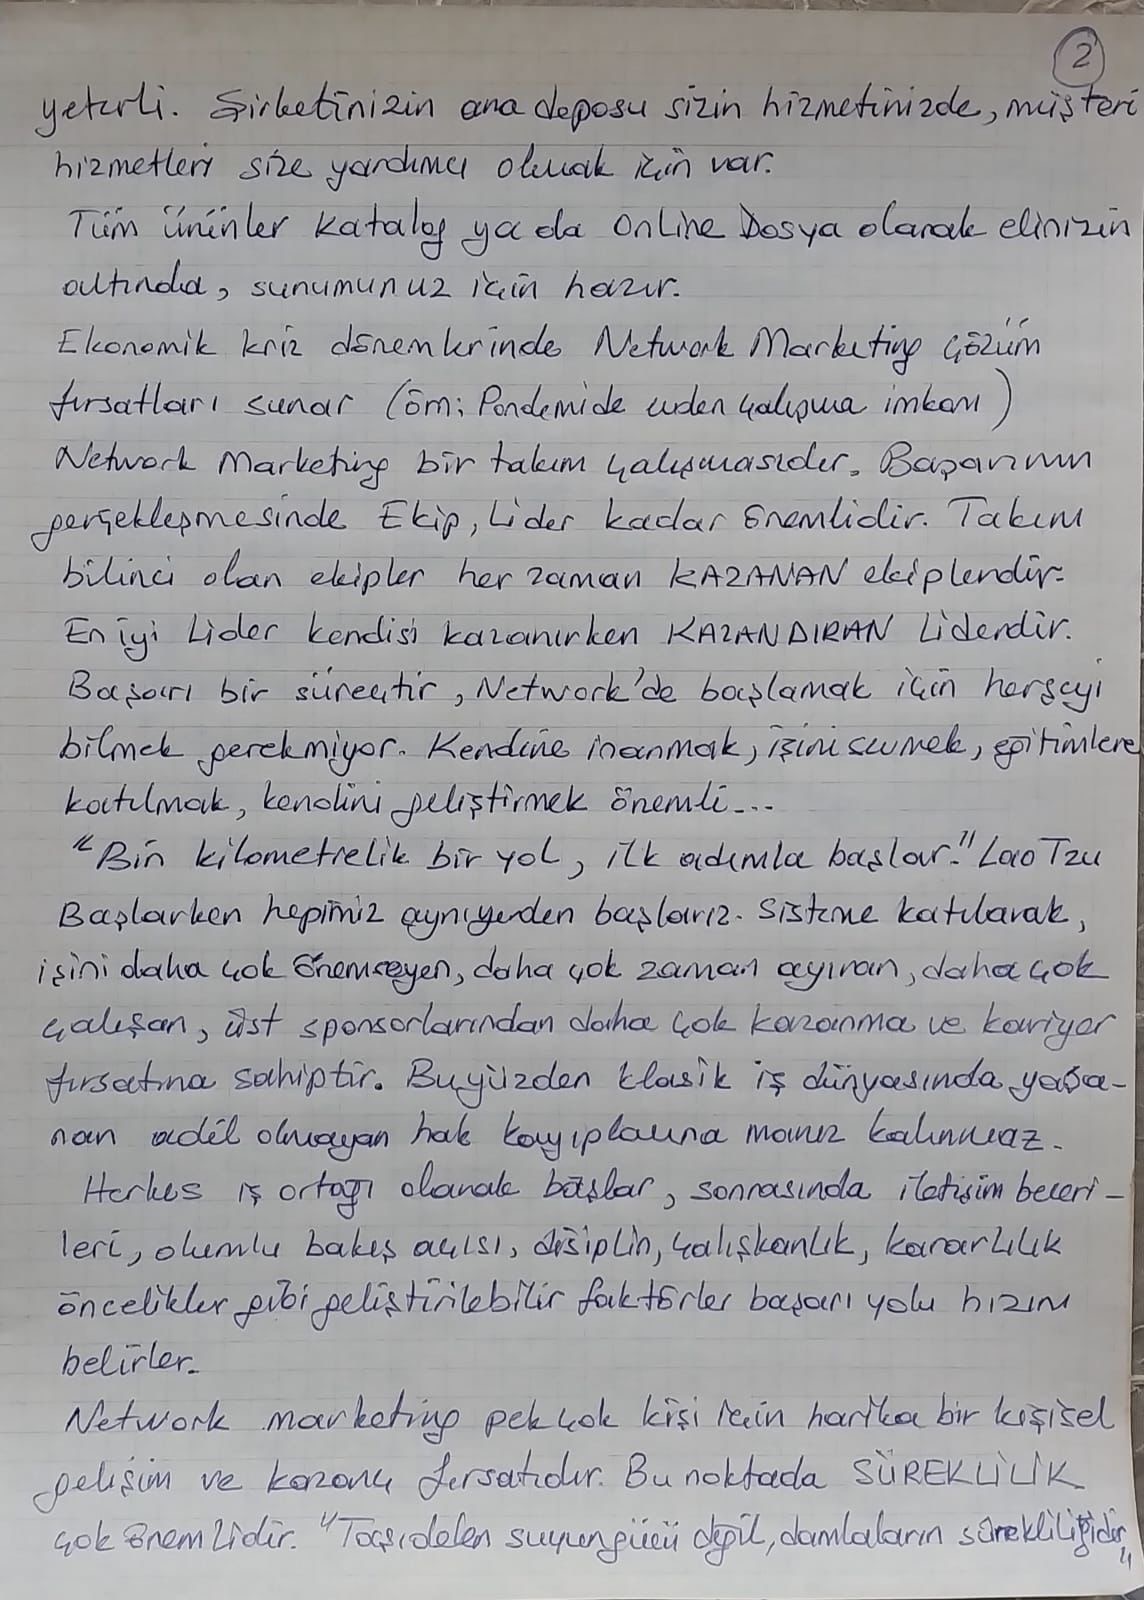 2
yeterli. Şirketinizin ana deposu sizin hizmetinizde, müşteri
hizmetleri size yardımcı olmak için var.
Tüm ürünler katalog ya da Online Dosya olarak elinizin
altında, sunumunuz için hazır.
Ekonomik kriz dönemlerinde Network Marketing çözüm
fırsatları sunar (örn; Pandemide evden çalışma imkanı)
Network Marketing bir takım çalışmasıdır. Başarının
gerçekleşmesinde Ekip, Lider kadar önemlidir. Takım
bilinci olan ekipler her zaman KAZANAN ekiplerdir.
En iyi Lider kendisi kazanırken KAZANDIRAN Liderdir.
Başarı bir süreçtir, Network'de başlamak için herşeyi
bilmek gerekmiyor. Kendine inanmak, işini sevmek, eğitimlere
katılmak, kendini geliştirmek önemli...
"Bin kilometrelik bir yol, ilk adımla başlar." Lao Tzu
Başlarken hepimiz aynı yerden başlarız. Sisteme katılarak,
işini daha çok önemseyen, daha çok zaman ayıran, daha çok
çalışan, üst sponsorlarından daha çok kazanma ve kariyer
fırsatına sahiptir. Bu yüzden klasik iş dünyasında yaşa-
nan adil olmayan hak kayıplarına maruz kalınmaz.
Herkes iş ortağı olarak başlar, sonrasında iletişim beceri-
leri, olumlu bakış açısı, disiplin, çalışkanlık, kararlılık
öncelikler gibi geliştirilebilir faktörler başarı yolu hızını
belirler.
Network marketing pek çok kişi için harika bir kişisel
gelişim ve kazanç fırsatıdır. Bu noktada SÜREKLİLİK
çok önemlidir. "Taşı delen suyun gücü değil, damlaların sürekliliğidir"